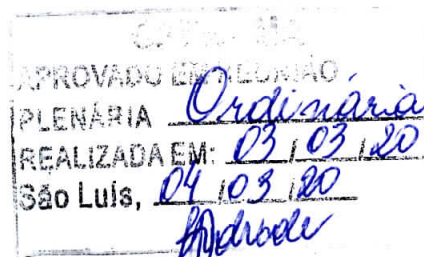 APROVADO EM REUNIÃO
PLENÁRIA Ordinária
REALIZADA EM: 03 / 03 / 20
São Luís, 04 / 03 / 20